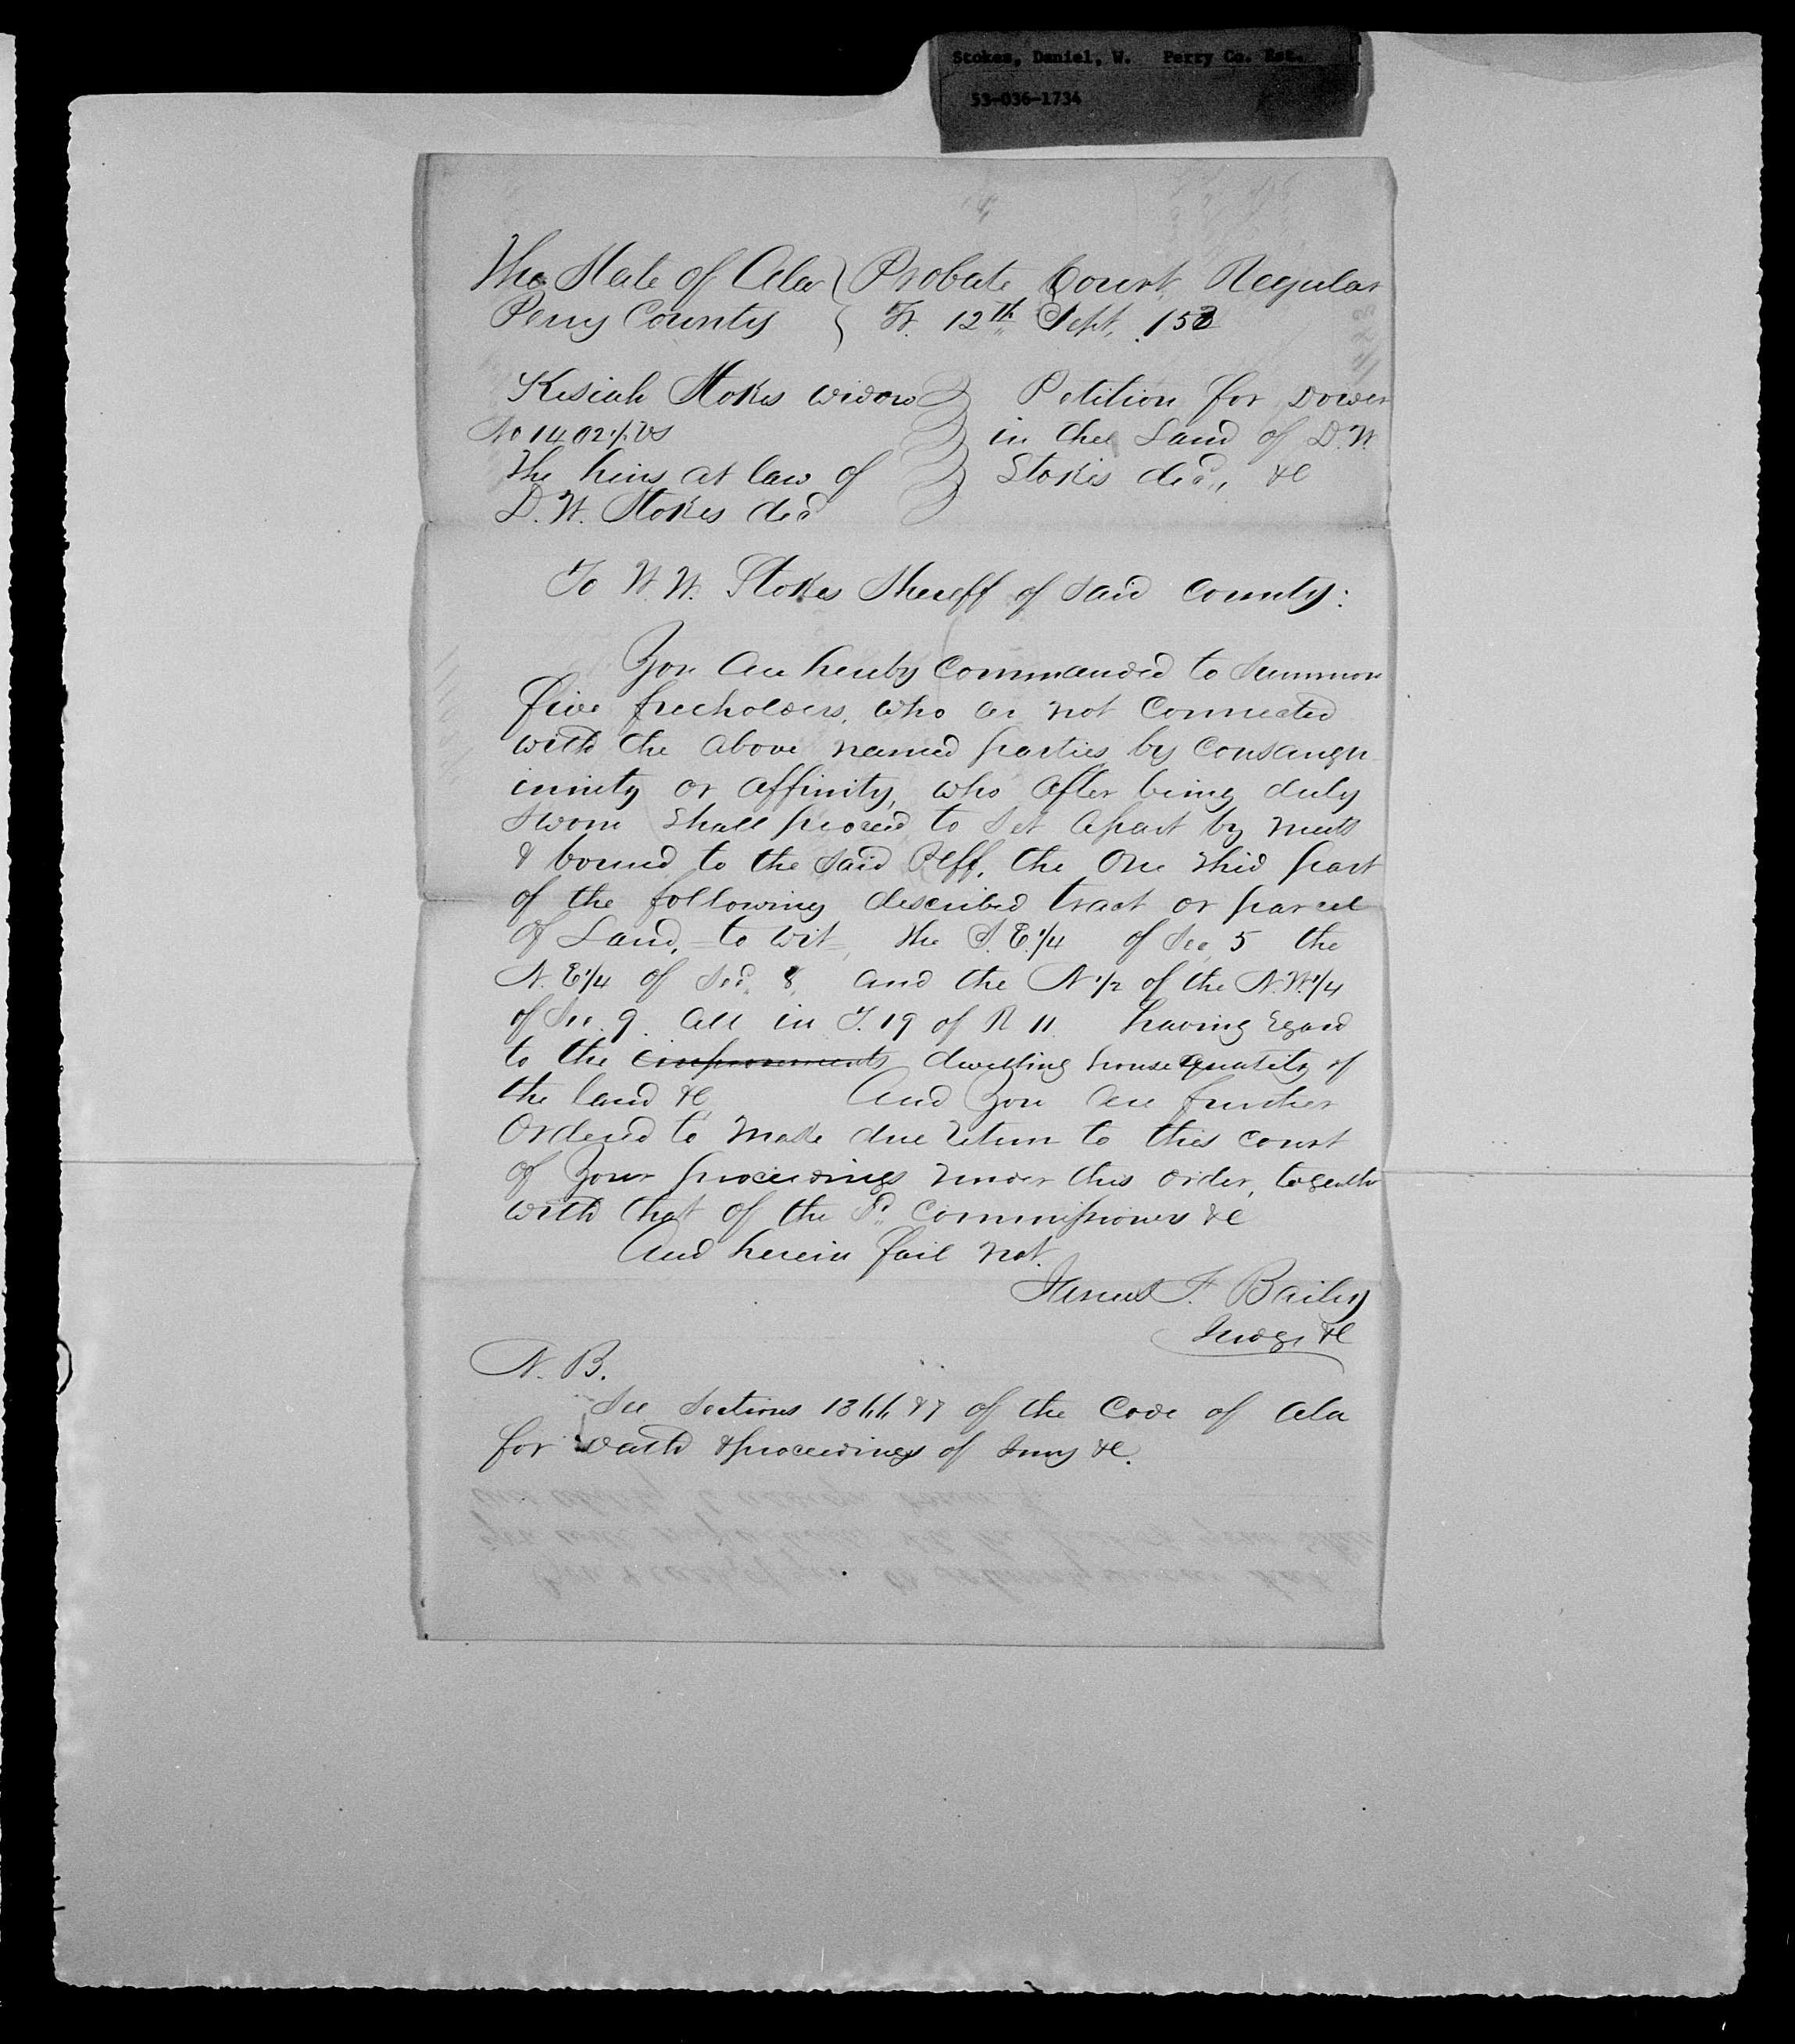 Stokes, Daniel, W. Perry Co. Est.
53-036-1734
The State of Ala } Probate Court, Regular
Perry County } Tr. 12th Sept. 1858
Kesiah Stokes widow } Petition for Dower
No 1402 1/2 vs } in the Land of D. W.
The heirs at law of } Stokes decd, &c
D. W. Stokes decd
To W. W. Stokes Sheriff of said County:
You are hereby Commanded to Summon
five freeholders, who are not Connected
with the above named parties by Consangu
innity or affinity, who after being duly
Sworn Shall proceed to Set apart by meets
& bound to the said Peff. the One third part
of the following described tract or parcel
of Land, to wit, the S. E. 1/4 of Sec, 5 the
N. E 1/4 of Sec. 8, and the N 1/2 of the N. W. 1/4
of Sec. 9. all in T. 19 of R 11 having regard
to the improvements dwelling house quality of
the land &c And you are further
Ordered to make due return to this court
of your proceedings under this order, together
with that of the Sd. Commissioners &c
And herein fail not.
James F. Bailey
Judge &c
N. B.
See Sections 1366 & 7 of the Code of Ala
for oath & proceedings of Jury &c.